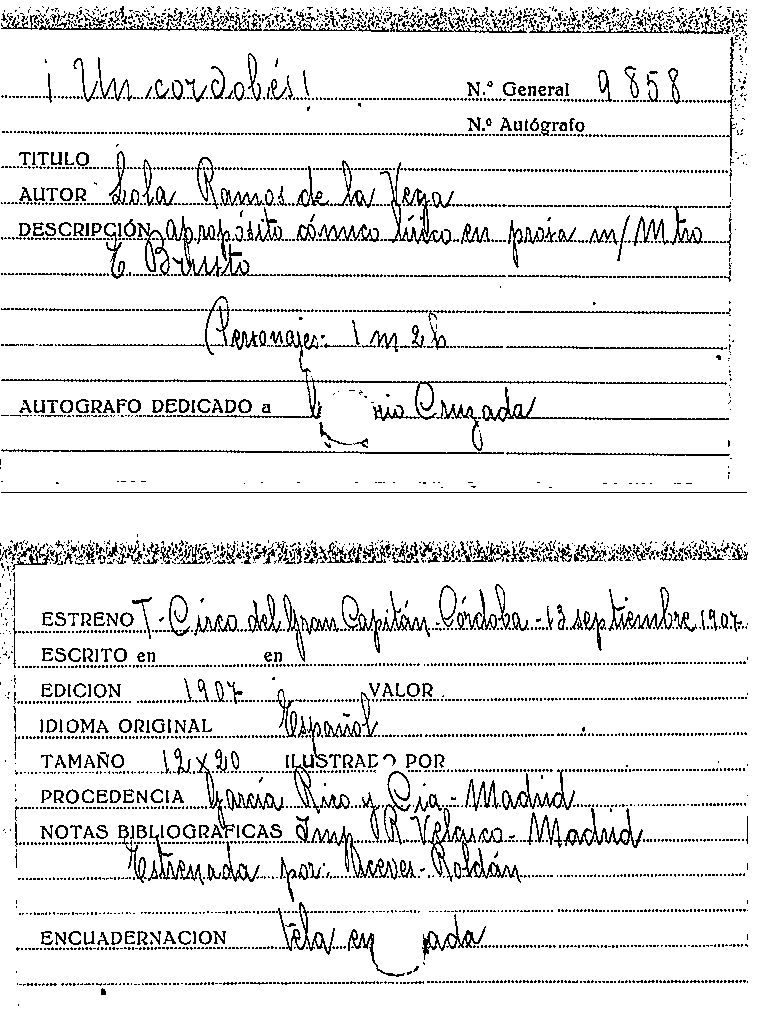 ¡Un cordobés! N.º General 9858
N.º Autógrafo
TITULO
AUTOR Lola Ramos de la Vega
DESCRIPCIÓN apropósito cómico lírico en prosa m/ Mtro
E.
Personajes: 1 m 2 h
AUTOGRAFO DEDICADO a Cruzada
ESTRENO T. Circo del Gran Capitán - Córdoba - 13 septiembre 1907
ESCRITO en en
EDICION 1907 VALOR
IDIOMA ORIGINAL Español
TAMAÑO 12x20 ILUSTRADO POR
PROCEDENCIA García Rico y Cia - Madrid
NOTAS BIBLIOGRAFICAS Imp R Velasco - Madrid
Estrenada por: - Roldán
ENCUADERNACION tela